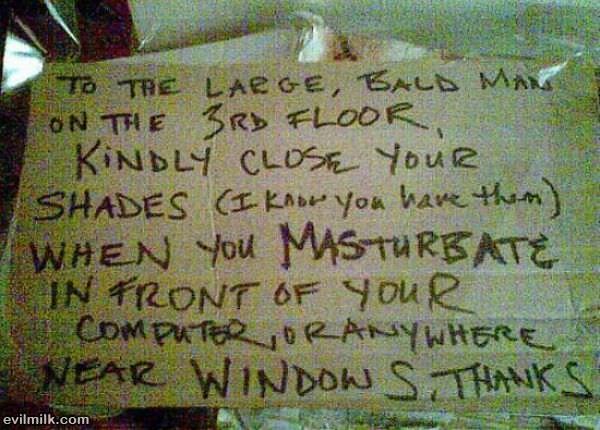 TO THE LARGE, BALD MAN
ON THE 3RD FLOOR,
KINDLY CLOSE YOUR
SHADES (I KNOW You have them)
WHEN YOU MASTURBATE
IN FRONT OF YOUR
COMPUTER, OR ANYWHERE
NEAR WINDOWS. THANKS
evilmilk.com